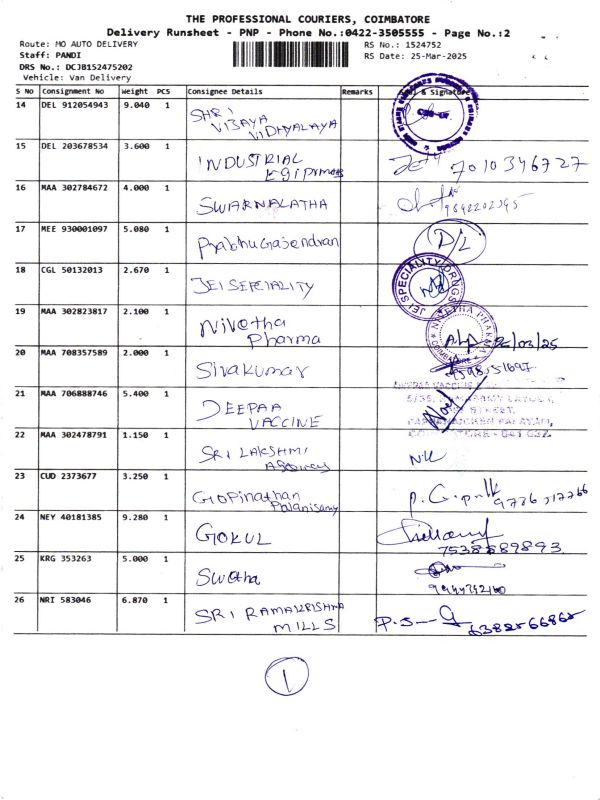 THE PROFESSIONAL COURIERS, COIMBATORE
Delivery Runsheet - PNP - Phone No.:0422-3505555 - Page No.:2
Route: MO AUTO DELIVERY
RS No.: 1524752
Staff: PANDI
RS Date: 25-Mar-2025
DRS No.: DCJB152475202
Vehicle: Van Delivery
S NO Consignment No Weight PCS Consignee Details Remarks & Signature
14 DEL 912054943 9.040 1 SHRI
VIJAYA
VIDHYALAYA
15 DEL 203678534 3.600 1 INDUSTRIAL 7010346727
16 MAA 302784672 4.000 1 SWARNALATHA
17 MEE 930001097 5.080 1 Prabhu Gajendran D/L
18 CGL 50132013 2.670 1 JEI SEPCIALITY JEI SPECIALITY DRUGS
19 MAA 302823817 2.100 1 Nivetha
Pharma NIVETHA PHARMA COIMBATORE
20 MAA 708357589 2.000 1 Sivakumar
21 MAA 706888746 5.400 1 DEEPAA
VACCINE DEEPAA VACCINE
STREET,
22 MAA 302478791 1.150 1 SRI LAKSHMI
23 CUD 2373677 3.250 1 Gopinathan
Palanisamy
24 NEY 40181385 9.280 1 GOKUL
25 KRG 353263 5.000 1 Swetha
26 NRI 583046 6.870 1 SRI RAMAKRISHNA
MILLS
1